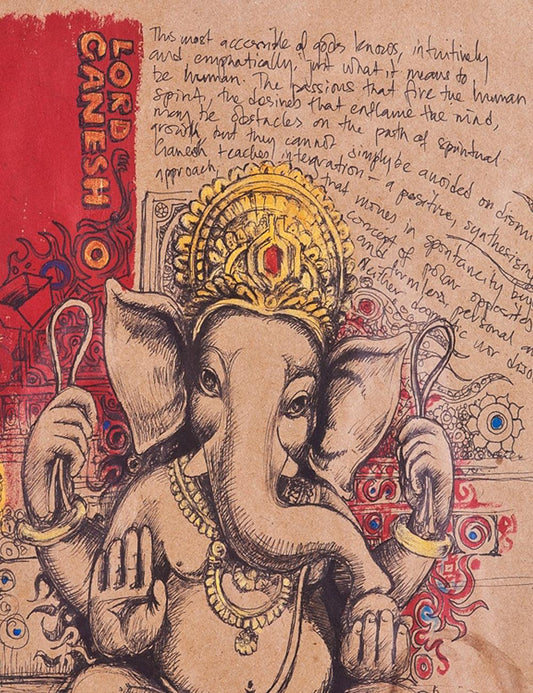 LORD
GANESH
This most accessible of gods knows, intuitively
and emphatically, just what it means to
be human. The passions that fire the human
spirit, the desires that enflame the mind,
may be obstacles on the path of spiritual
growth, but they cannot simply be avoided or dismi
Ganesh teaches integration - a positive, synthesising
approach that moves in spontaneity bey
concept of polar opposites
and formless, personal an
Neither dogmatic nor diso